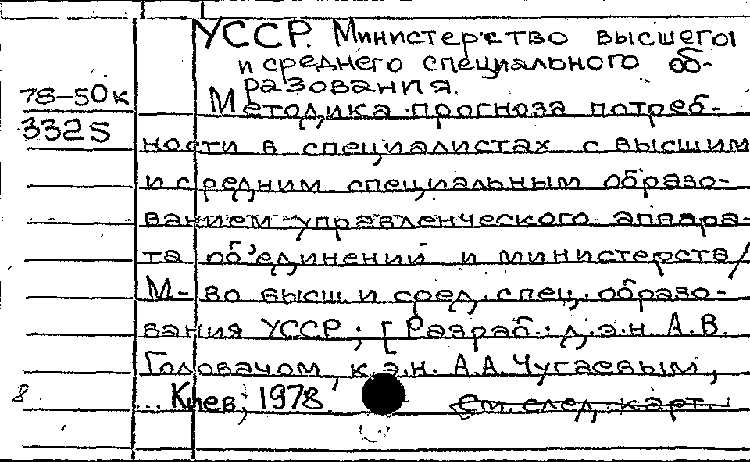 УССР. Министерство высшего
и среднего специального об-
разования.
78-50к
Методика прогноза потреб-
3325
ности в специалистах с высшим
и средним специальным образо-
ванием управленческого аппара-
та объединений и министерств/
М-во высш. и сред. спец. образо-
вания УССР; [Разраб.: д.э.н. А.В.
Головачом, к.э.н. А.А. Чугаевым,
8
... Киев, 1978.
См. след. карт.